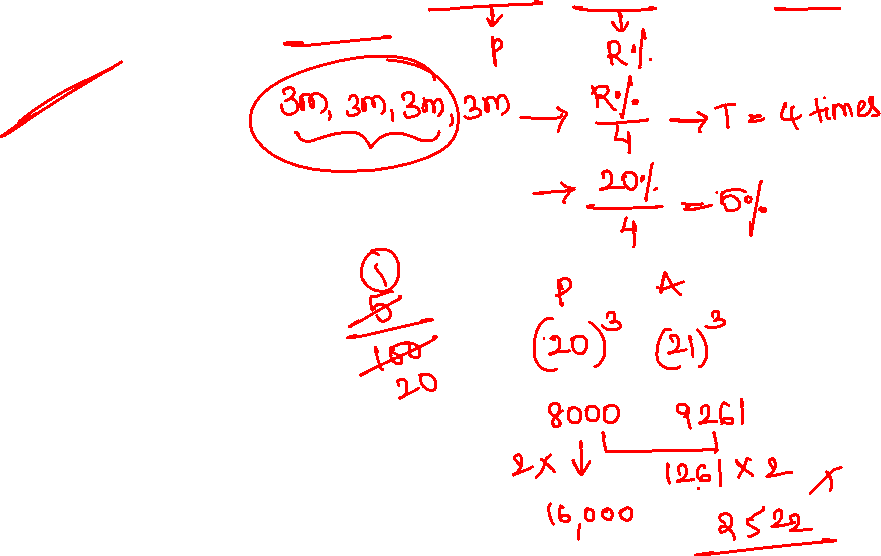 P R%
3m, 3m, 3m, 3m → R%/4 → T = 4 times
→ 20%/4 = 5%
1
5
100
20
P A
(20)³ (21)³
8000 9261
2× ↓ 1261 × 2
16,000 2522